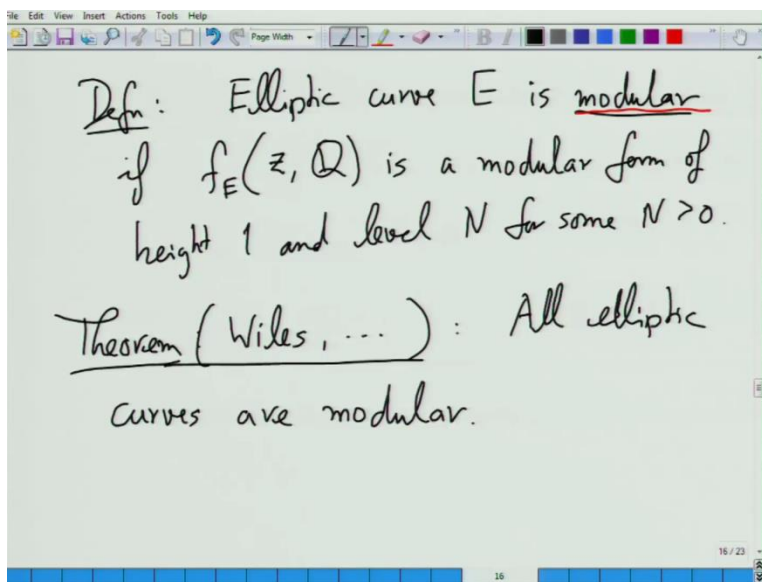 File Edit View Insert Actions Tools Help
Page Width
Defn: Elliptic curve E is modular
if f_E(z, Q) is a modular form of
height 1 and level N for some N > 0.
Theorem (Wiles, ...): All elliptic
curves are modular.
16 / 23
16